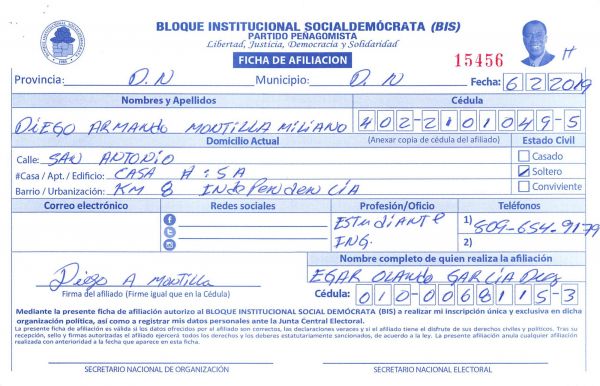 BLOQUE INSTITUCIONAL SOCIALDEMÓCRATA (BIS)
PARTIDO PEÑAGOMISTA
Libertad, Justicia, Democracia y Solidaridad
FICHA DE AFILIACION
15456
Provincia: D.N Municipio: D.N Fecha: 6 2 2019
Nombres y Apellidos Cédula
DIEGO ARMANDO MONTILLA MILIANO 402-2101049-5
Domicilio Actual (Anexar copia de cédula del afiliado) Estado Civil
Calle: SAN ANTONIO Casado
#Casa / Apt. / Edificio: CASA #:5A Soltero
Barrio / Urbanización: KM 8 Independencia Conviviente
Correo electrónico Redes sociales Profesión/Oficio Teléfonos
EStudiante 1) 809-654-9179
ING. 2)
Nombre completo de quien realiza la afiliación
Diego A Montilla EGAR OLANDO GARCIA
Firma del afiliado (Firme igual que en la Cédula) Cédula: 010-0068115-3
Mediante la presente ficha de afiliación autorizo al BLOQUE INSTITUCIONAL SOCIAL DEMÓCRATA (BIS) a realizar mi inscripción única y exclusiva en dicha
organización política, así como a registrar mis datos personales ante la Junta Central Electoral.
La presente ficha de afiliación es válida si los datos ofrecidos por el afiliado son correctos, las declaraciones veraces y si el afiliado tiene el disfrute de sus derechos civiles y políticos. Tras su
recepción, sello y firmas autorizadas el afiliado ejercerá todos los derechos y los deberes estatutariamente sancionados, de acuerdo a la ley. La presente afiliación anula cualquier afiliación
realizada con anterioridad a la fecha que aparece en esta ficha.
SECRETARIO NACIONAL DE ORGANIZACIÓN SECRETARIO NACIONAL ELECTORAL